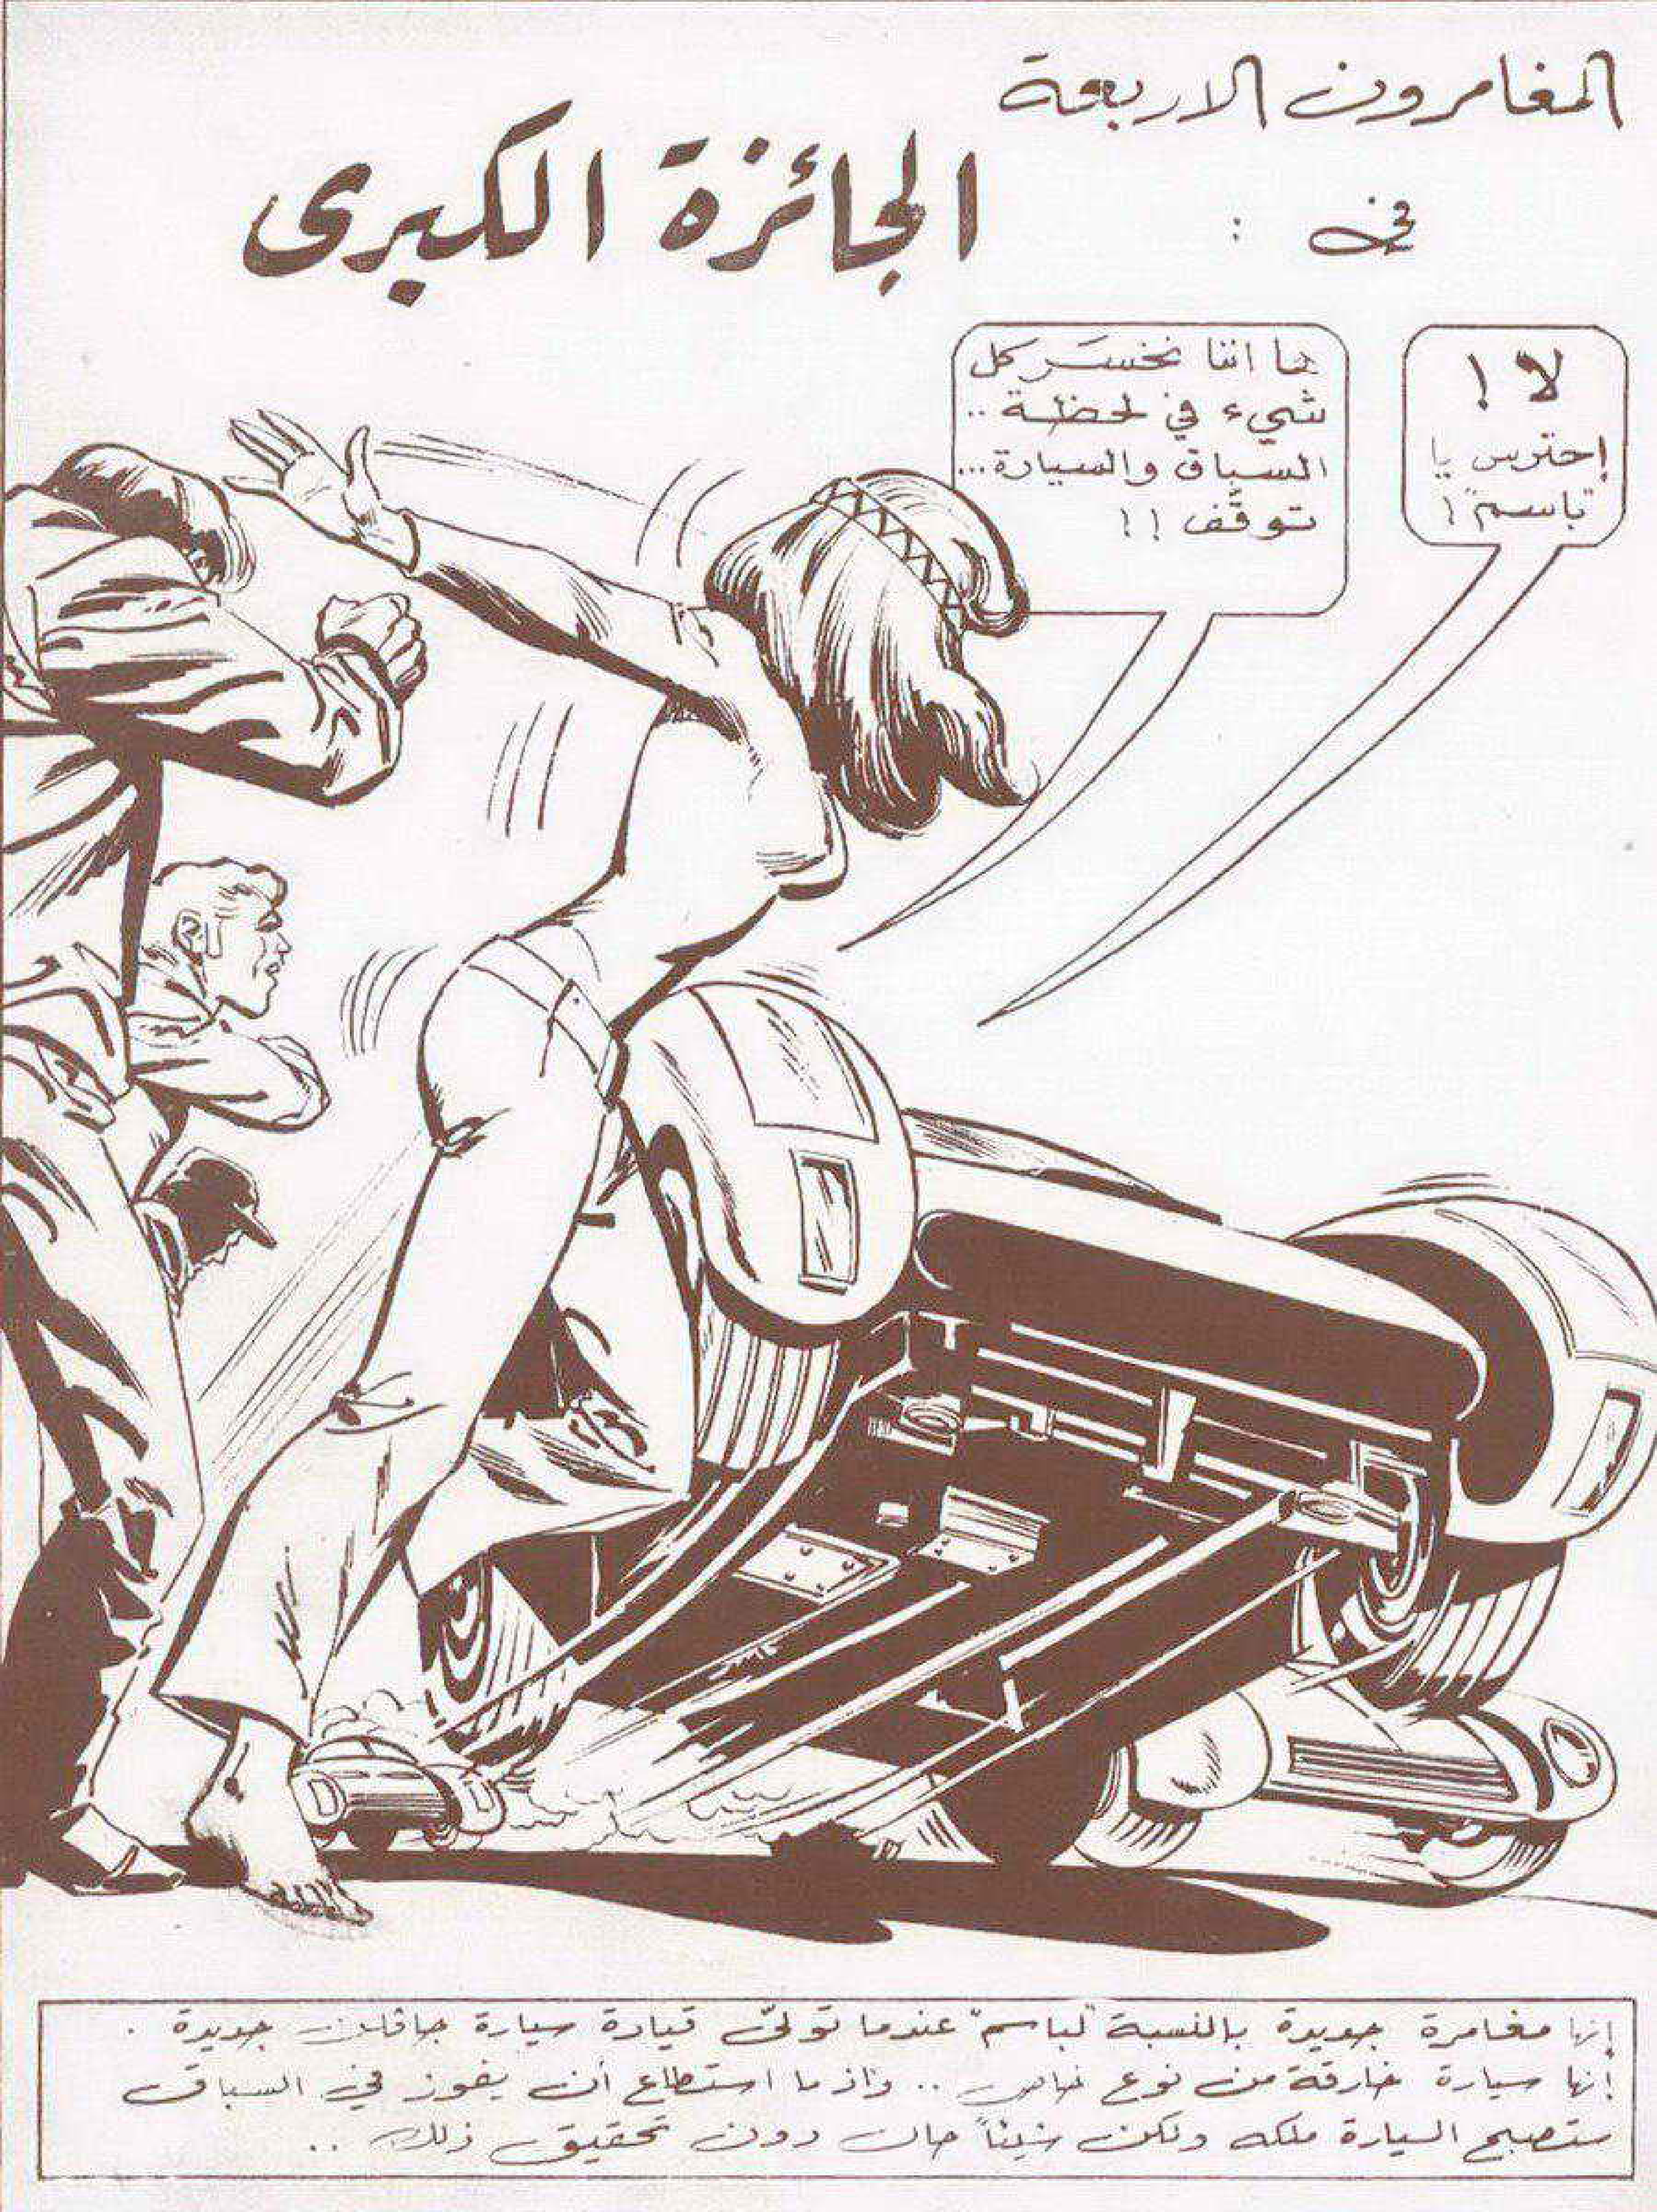 المغامرون الاربعة
في :
الجائزة الكبرى
لا !
إحترس يا
"باسم" !
ها اننا نخسر كل
شيء في لحظة ..
السباق والسيارة ...
توقّف !!
إنها مغامرة جديدة بالنسبة "لباسم" عندما تولّى قيادة سيارة جاڤلن جديدة .
إنها سيارة خارقة من نوع خاص .. واذا ما استطاع أن يفوز في السباق
ستصبح السيارة ملكه ولكن شيئاً حال دون تحقيق ذلك ..